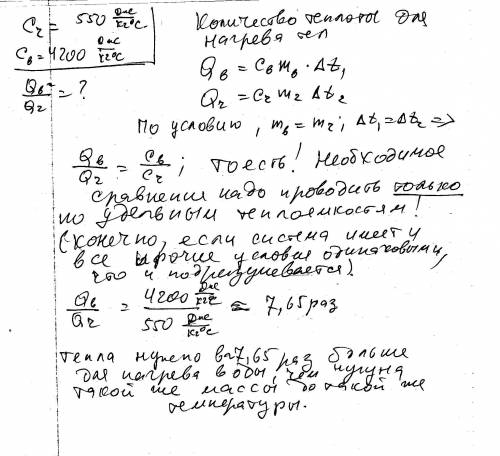 Cг = 550 Дж/кг°С
Св = 4200 Дж/кг°С
Qв/Qг = ?
Количество теплоты для
нагрева тел
Qв = Cв mв · Δt₁
Qг = Cг mг Δt₂
По условию, mв = mг; Δt₁ = Δt₂ =>
Qв/Qг = Cв/Cг; то есть! Необходимое
сравнение надо проводить только
по удельным теплоемкостям!
(конечно, если система имеет и
все прочие условия одинаковыми,
что и подразумевается).
Qв/Qг = 4200 Дж/кг°С / 550 Дж/кг°С ≈ 7,65 раз
тепла нужно в ~7,65 раз больше
для нагрева воды, чем чугуна
такой же массы до такой же
температуры.